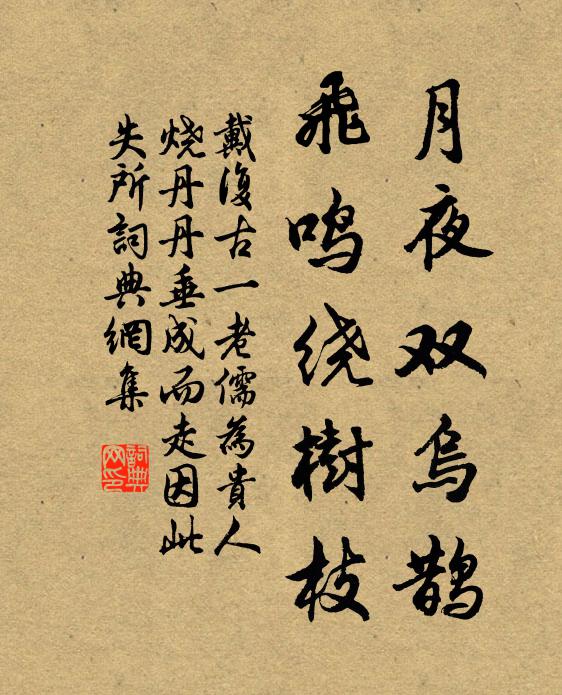 月夜双乌鹊
飞鸣绕樹枝
戴復古一老儒為貴人
烧丹丹垂成而走因此
失所詞典網集
詞典网印